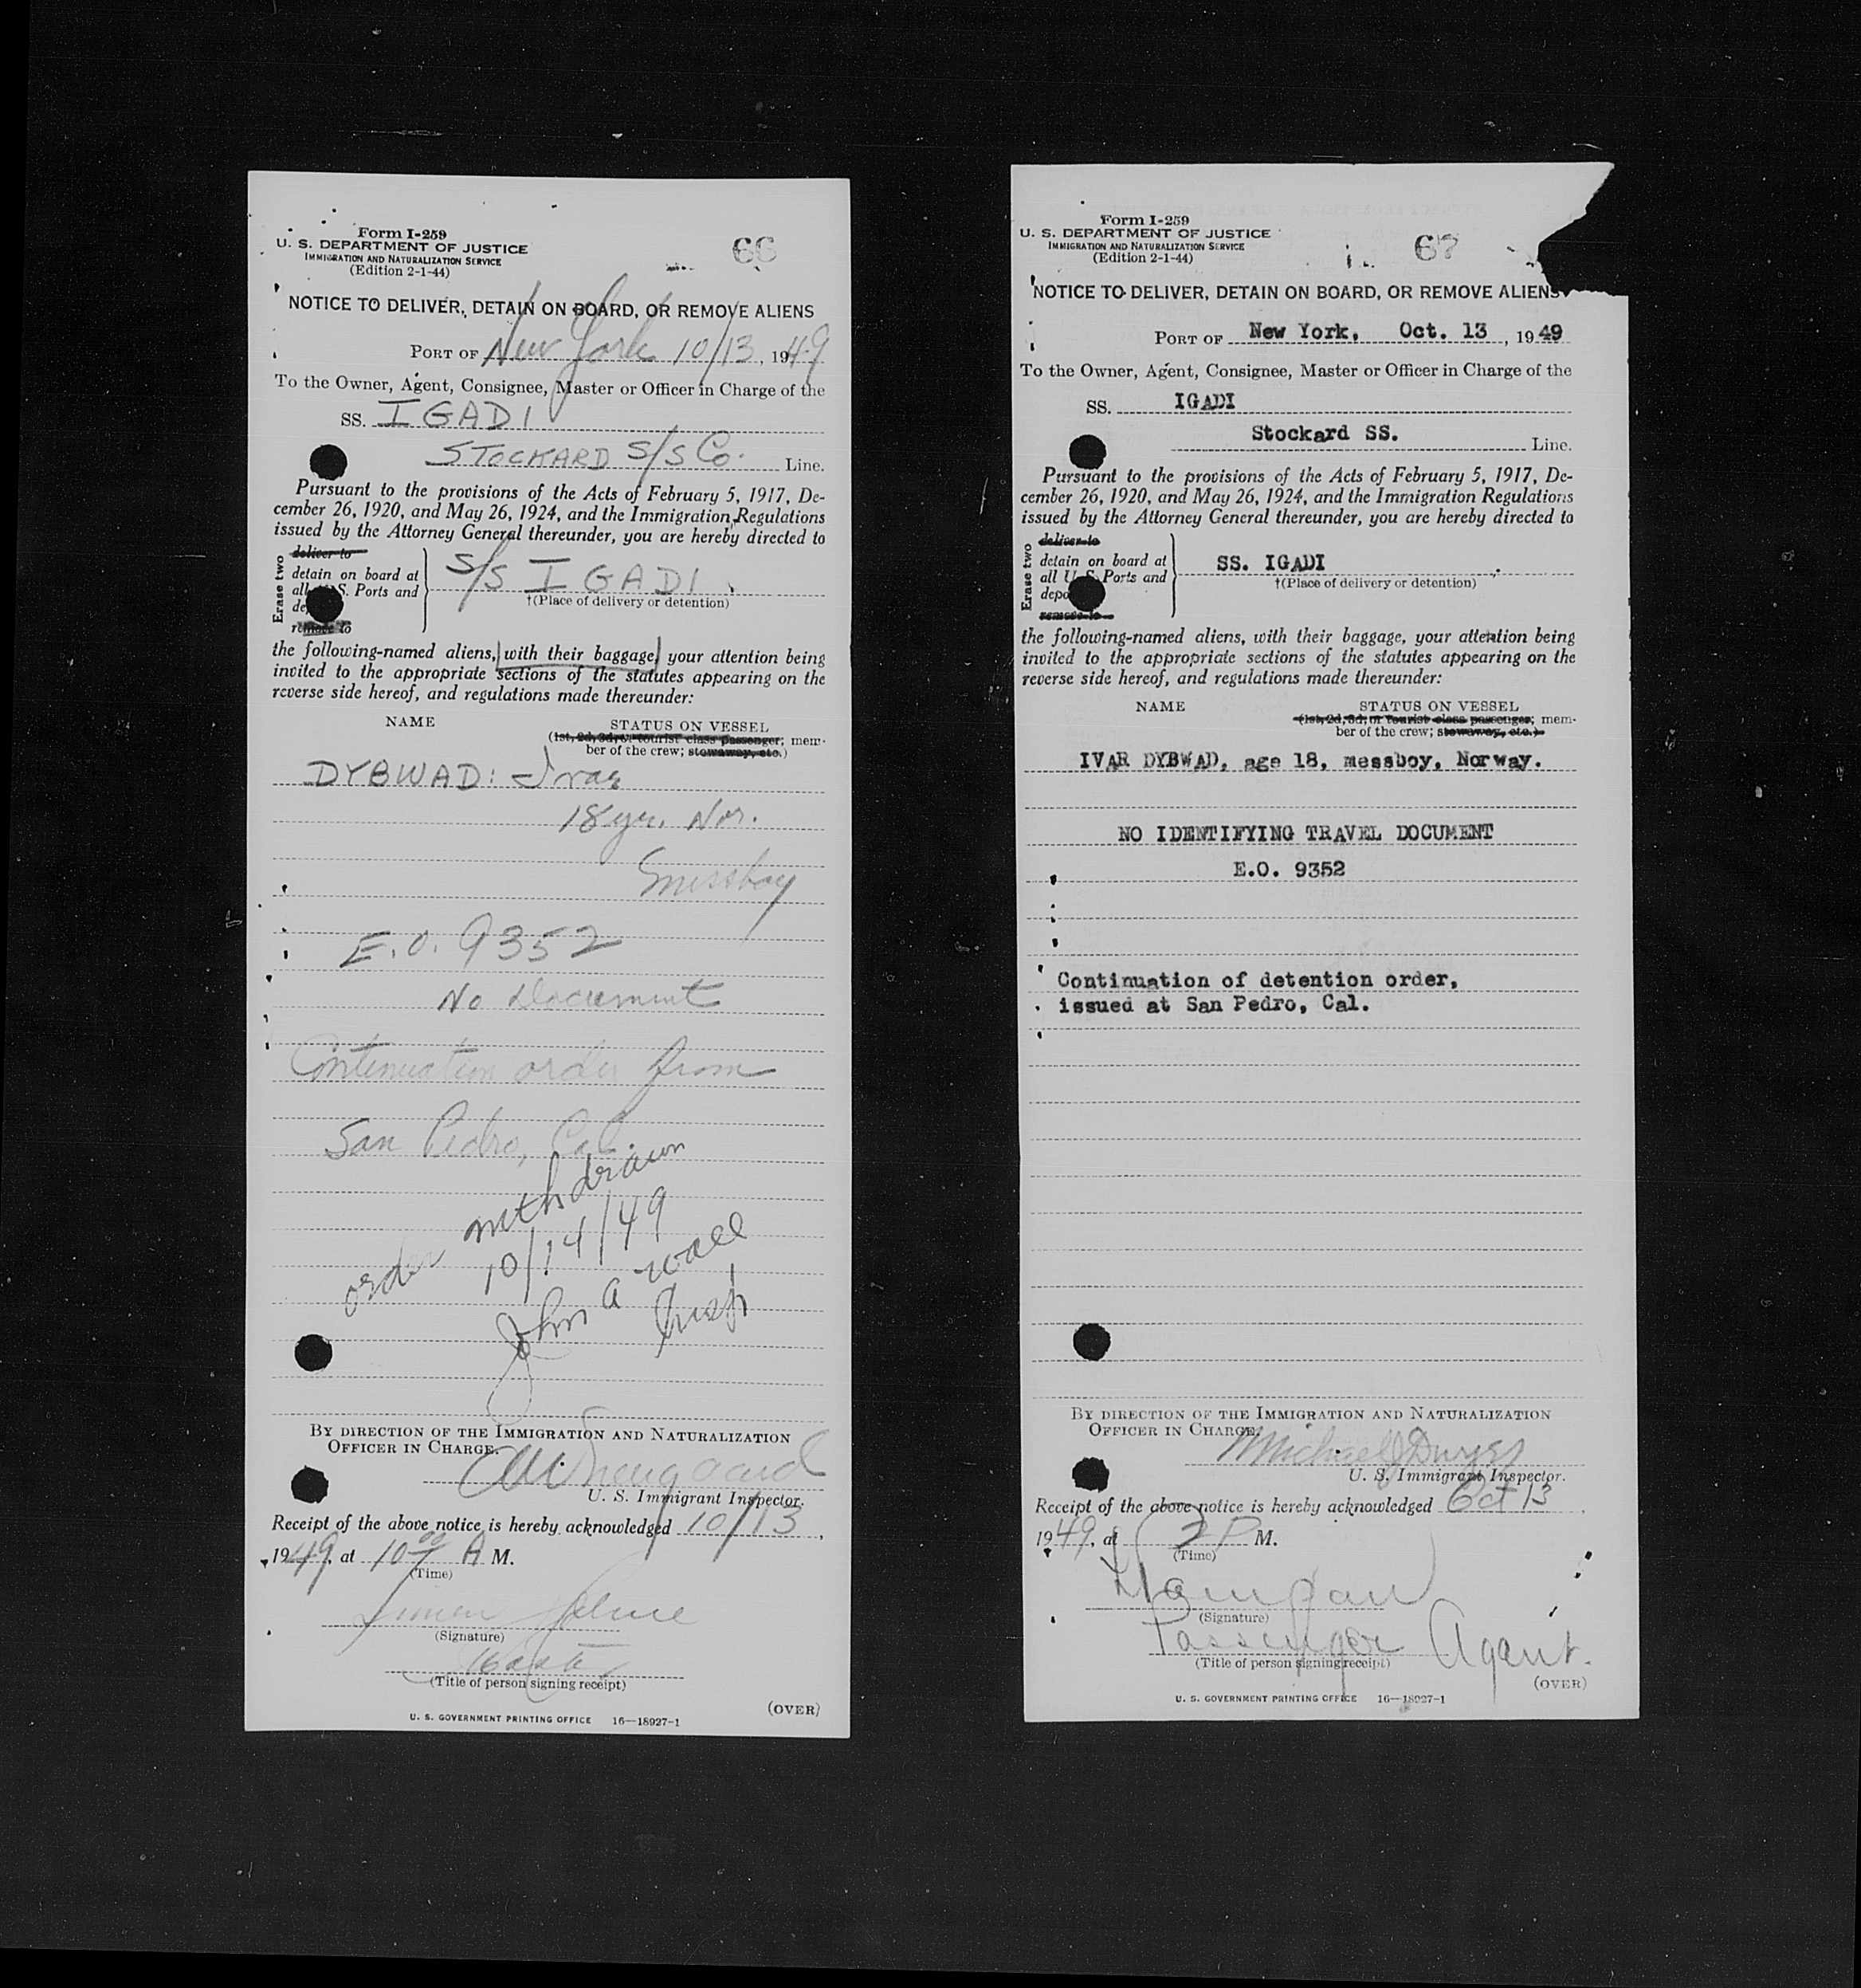 Form I-259
U. S. DEPARTMENT OF JUSTICE
IMMIGRATION AND NATURALIZATION SERVICE
(Edition 2-1-44)
66
NOTICE TO DELIVER, DETAIN ON BOARD, OR REMOVE ALIENS
PORT OF New York 10/13, 1949
To the Owner, Agent, Consignee, Master or Officer in Charge of the
SS. IGADI
STOCKARD S/S Co. Line.
Pursuant to the provisions of the Acts of February 5, 1917, De-
cember 26, 1920, and May 26, 1924, and the Immigration Regulations
issued by the Attorney General thereunder, you are hereby directed to
Erase two
deliver to
detain on board at
all S. Ports and
remove to
S/S IGADI
†(Place of delivery or detention)
the following-named aliens, with their baggage, your attention being
invited to the appropriate sections of the statutes appearing on the
reverse side hereof, and regulations made thereunder:
NAME
STATUS ON VESSEL
(1st, 2d, 3d, or tourist class passenger; mem-
ber of the crew; stowaway, etc.)
DYBWAD: Ivar
18 yr. Nor.
messboy
E.O. 9352
No Document
Continuation order from
San Pedro, Cal.
order withdrawn
10/14/49
John A Wall
Insp
BY DIRECTION OF THE IMMIGRATION AND NATURALIZATION
OFFICER IN CHARGE.
U. S. Immigrant Inspector.
Receipt of the above notice is hereby acknowledged 10/13,
1949, at 10 00 A M.
(Time)
(Signature)
(Title of person signing receipt)
(OVER)
U. S. GOVERNMENT PRINTING OFFICE 16—18927-1
Form I-259
U. S. DEPARTMENT OF JUSTICE
IMMIGRATION AND NATURALIZATION SERVICE
(Edition 2-1-44)
67
NOTICE TO DELIVER, DETAIN ON BOARD, OR REMOVE ALIENS
PORT OF New York, Oct. 13, 1949
To the Owner, Agent, Consignee, Master or Officer in Charge of the
SS. IGADI
Stockard SS. Line.
Pursuant to the provisions of the Acts of February 5, 1917, De-
cember 26, 1920, and May 26, 1924, and the Immigration Regulations
issued by the Attorney General thereunder, you are hereby directed to
Erase two
deliver to
detain on board at
all U. S. Ports and
depo
remove to
SS. IGADI
†(Place of delivery or detention)
the following-named aliens, with their baggage, your attention being
invited to the appropriate sections of the statutes appearing on the
reverse side hereof, and regulations made thereunder:
NAME
STATUS ON VESSEL
(1st, 2d, 3d, or tourist class passenger; mem-
ber of the crew; stowaway, etc.)
IVAR DYBWAD, age 18, messboy, Norway.
NO IDENTIFYING TRAVEL DOCUMENT
E.O. 9352
Continuation of detention order,
issued at San Pedro, Cal.
BY DIRECTION OF THE IMMIGRATION AND NATURALIZATION
OFFICER IN CHARGE.
Michael J Dwyer
U. S. Immigrant Inspector.
Receipt of the above notice is hereby acknowledged Oct 13,
1949, at 2 P M.
(Time)
(Signature)
Passenger Agent.
(Title of person signing receipt)
(OVER)
U. S. GOVERNMENT PRINTING OFFICE 16—18927-1